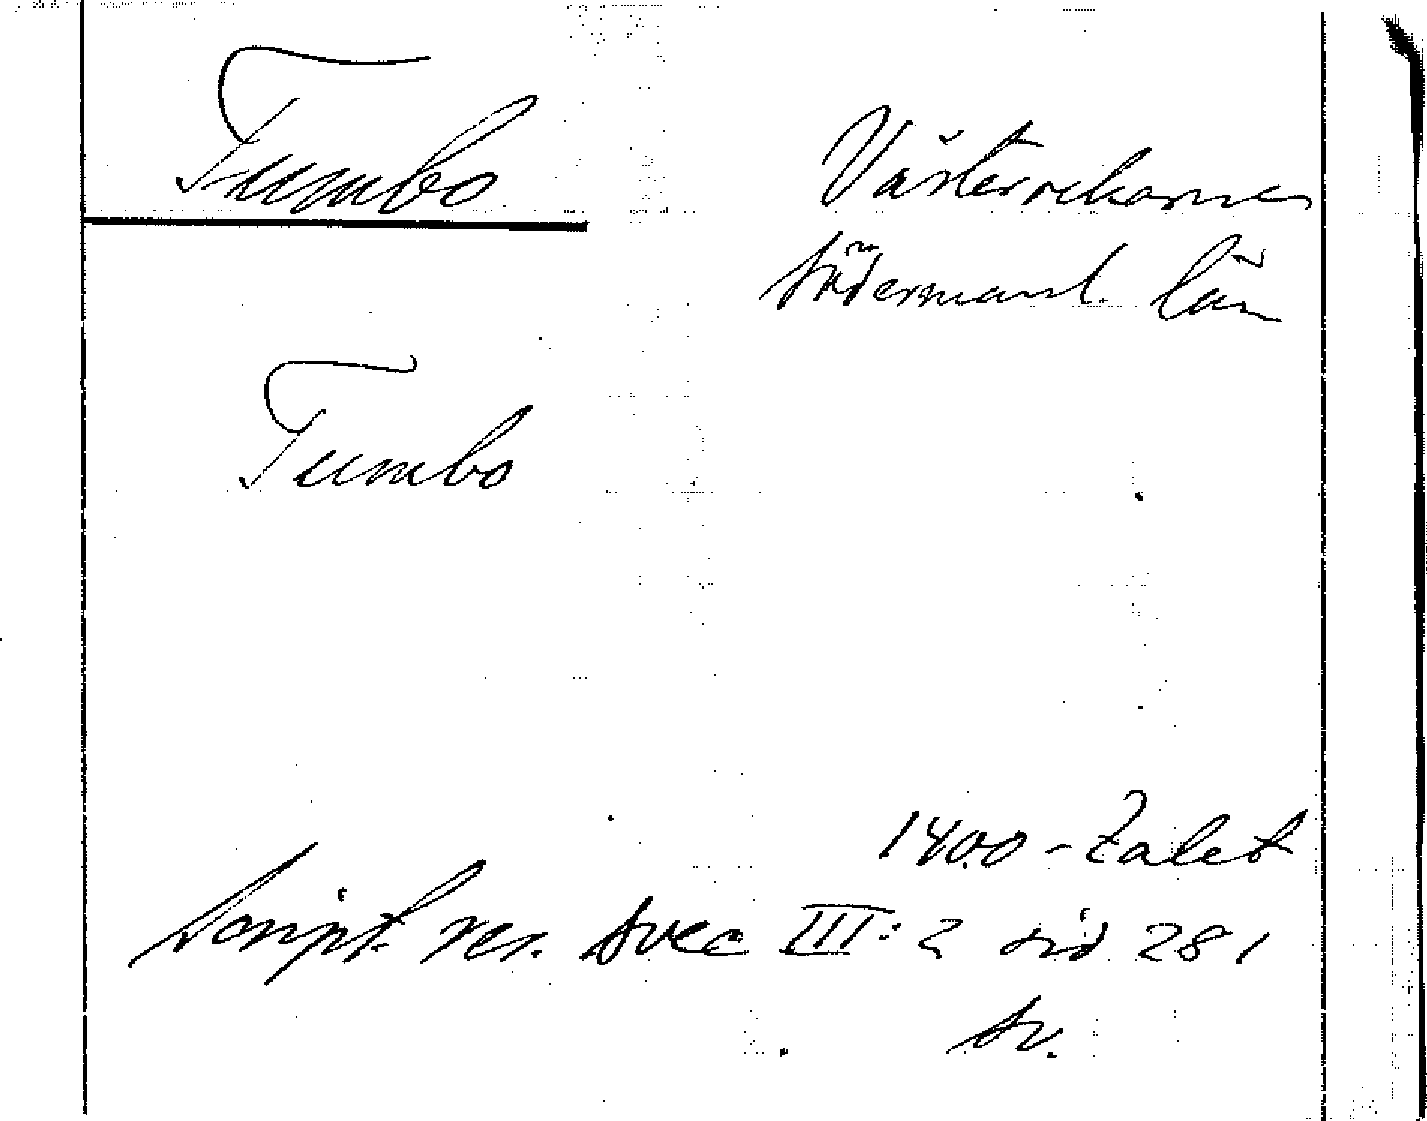 Tumbo
Västerrekarne
Södermanl. län
Tumbo
1400-talet
Script. rer. Svec III: 2 sid 281
Sv.